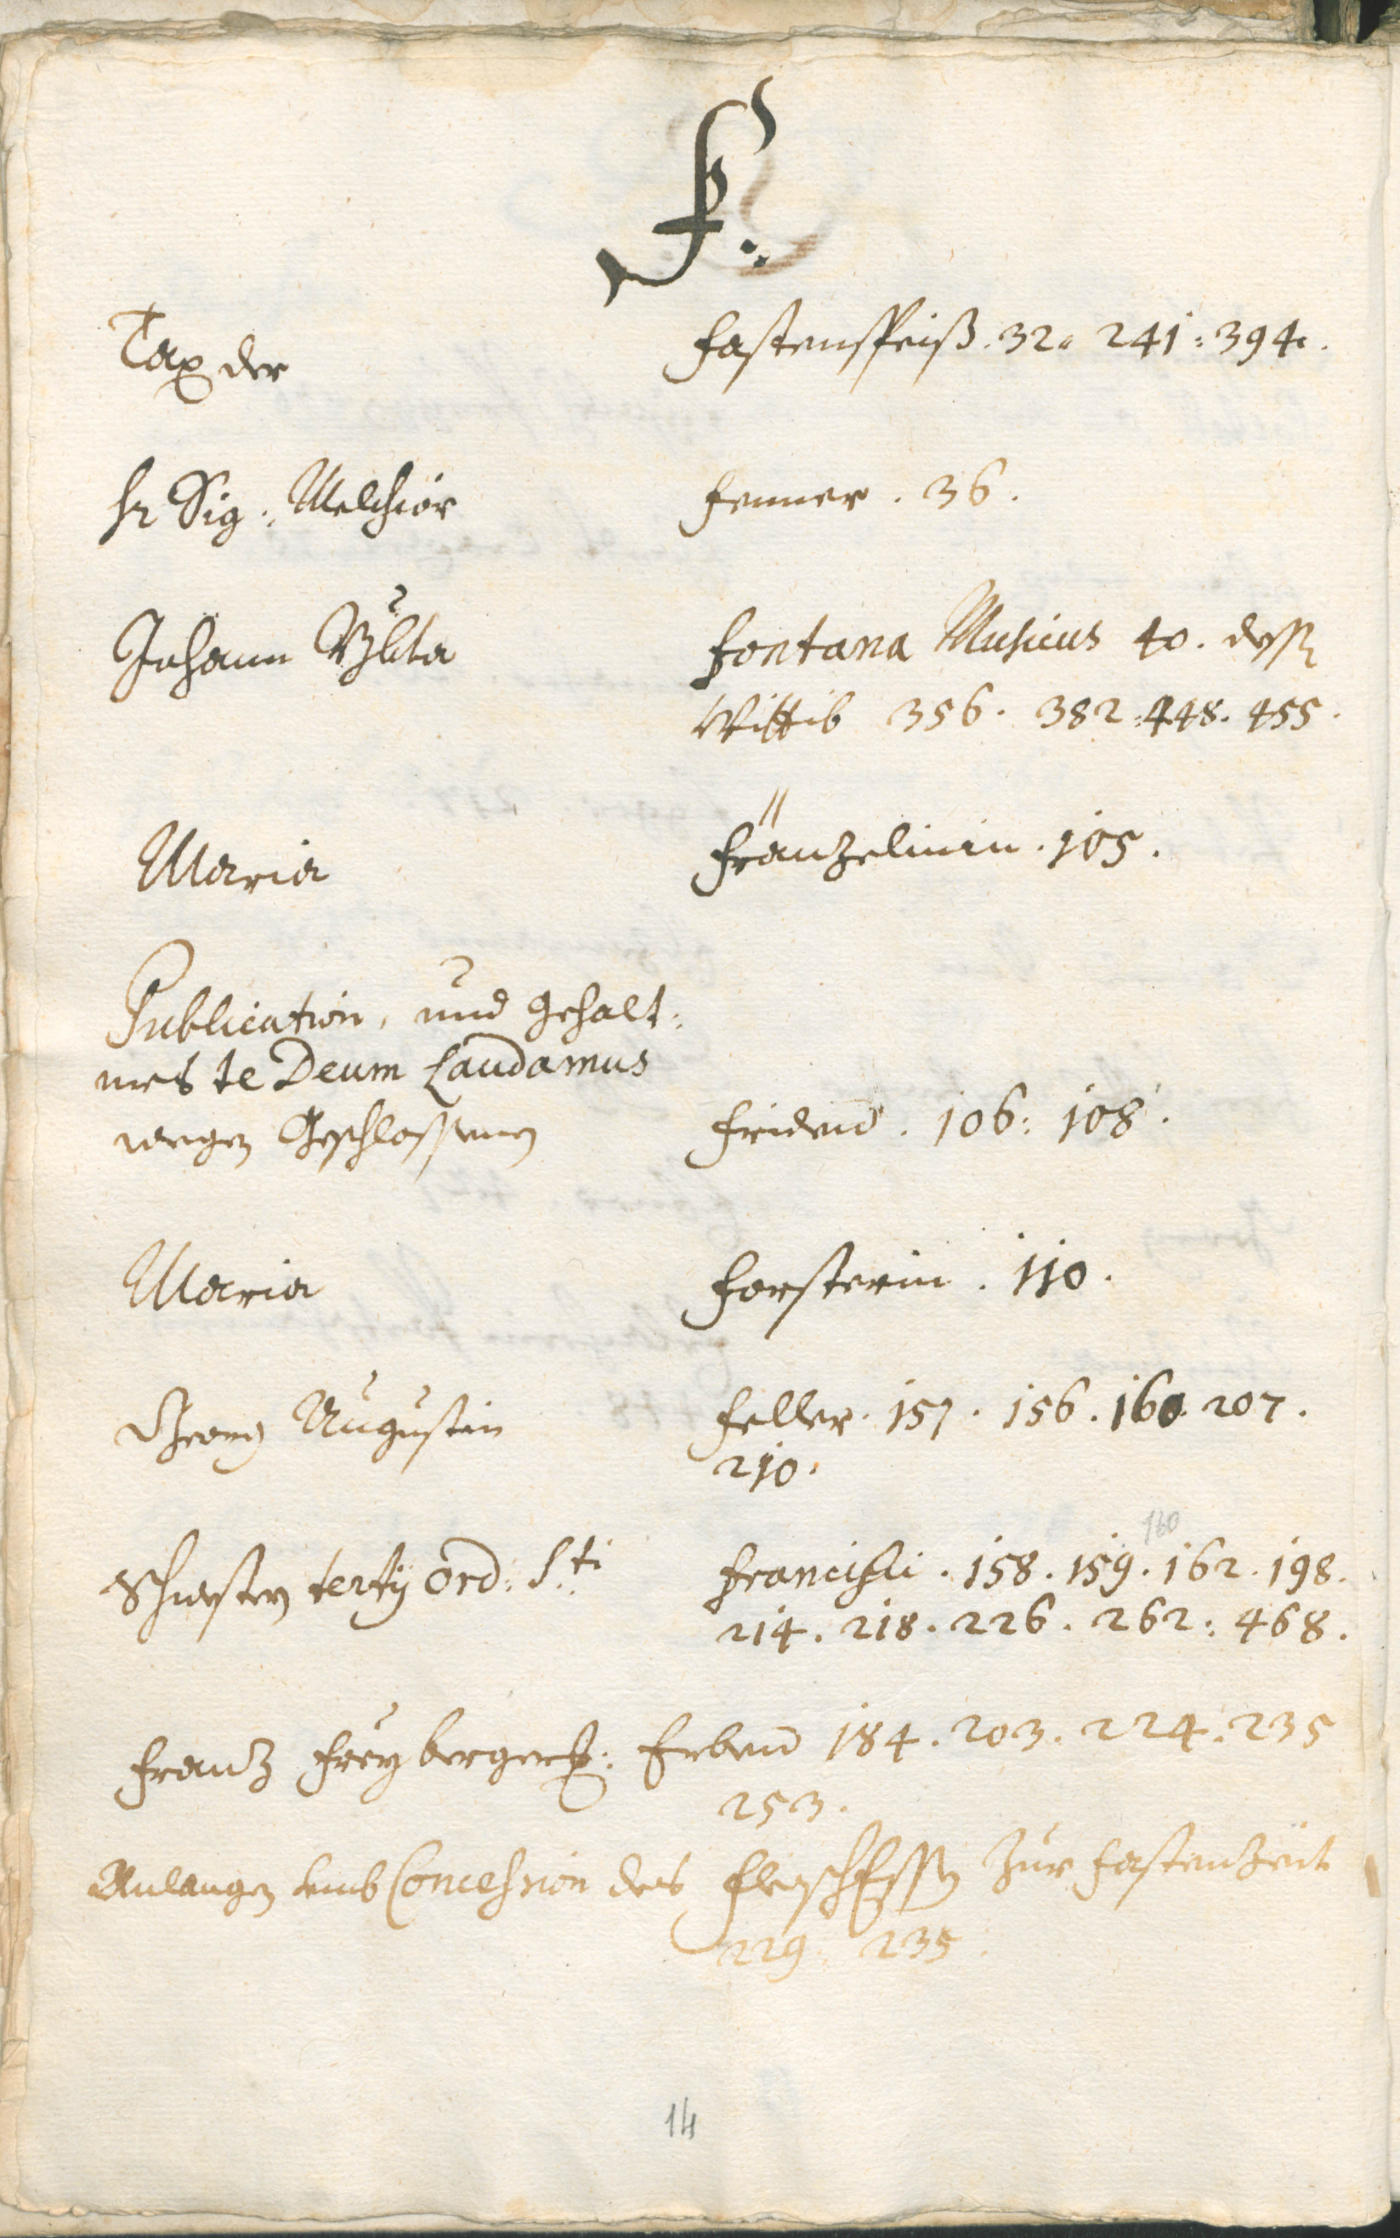 F.
Tax der Fastenspeiß. 32. 241: 394.
Hr Sig: Melchior Fenner. 36.
Johann Fontana Musicus 40. dessen
Wittib 356. 382. 448. 455.
Maria Fränzelinin. 105.
Publication, und gehalt:
nes te Deum Laudamus
wegen Geschlossenen Fridens. 106: 108.
Maria Forsterin. 110.
Georg Augustin Feller. 151. 156. 160. 207.
210.
160
Schwestern tertij Ord: S:ti Francisci. 158. 159. 162. 198.
214. 218. 226. 262: 468.
Franz Freyberger: Erben 184. 203. 224. 235
253.
Anlangen umb Concession des FleischEssen zur Fastenzeit
229. 235.
14